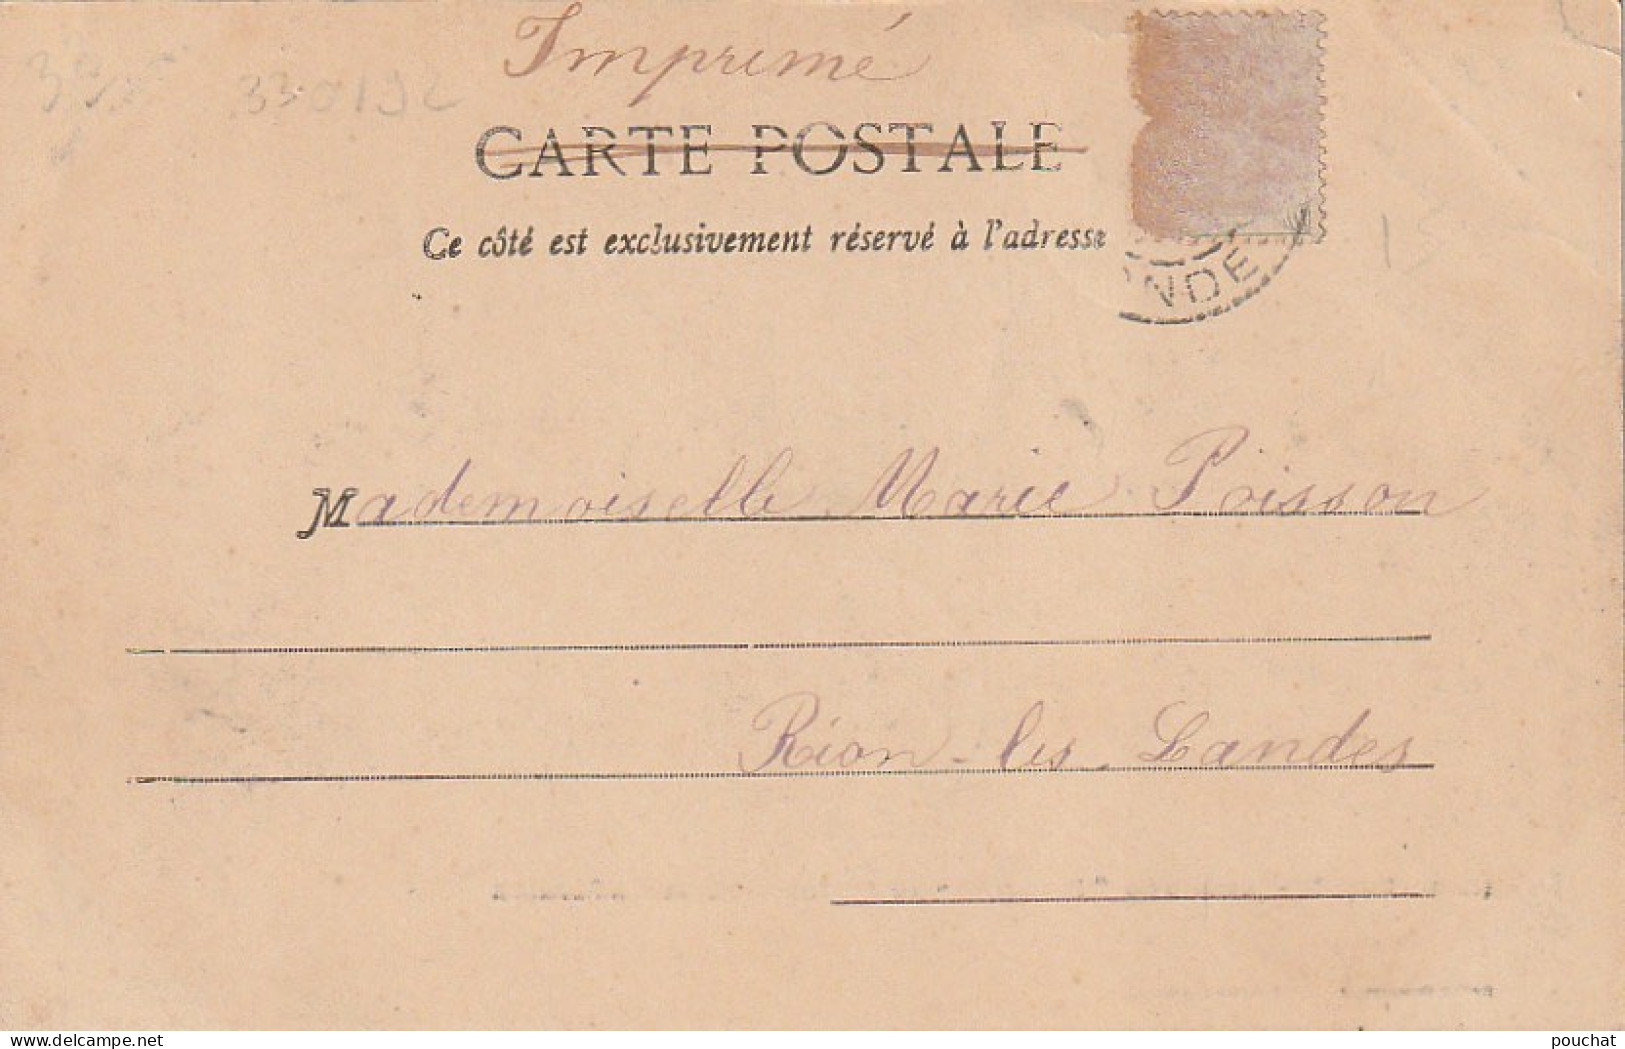 Imprimé
330192
CARTE POSTALE
Ce côté est exclusivement réservé à l'adresse
NDE
Mademoiselle Marie Poisson
Rion-les-Landes
delcampe.net
pouchat